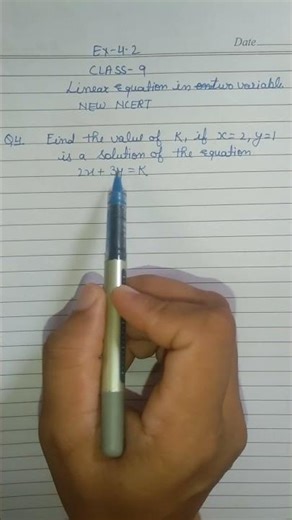 Date
Ex-4.2
CLASS-9
Linear Equation in two variable
NEW NCERT
Q4. Find the value of K, if x=2, y=1
is a solution of the equation
2x + 3y = K